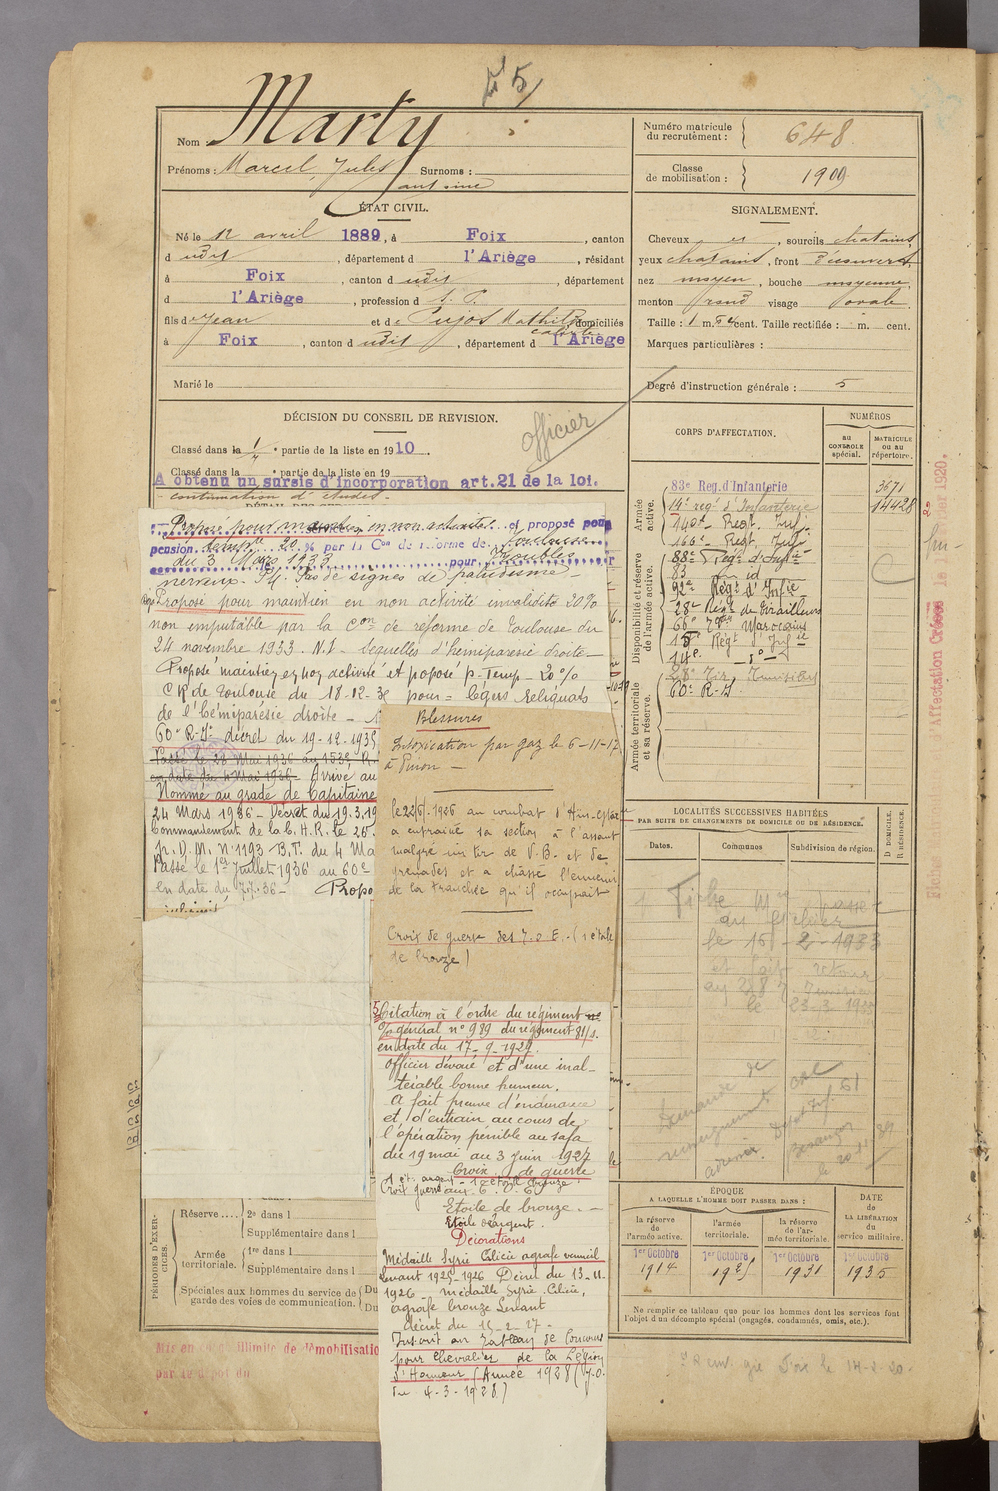 N° 5
Nom : Marty
Prénoms : Marcel, Jules Surnoms :
antoine
Numéro matricule du recrutement : 648
Classe de mobilisation : 1909
ÉTAT CIVIL.
Né le 12 avril 1889, à Foix, canton
d udit, département d l'Ariège, résidant
à Foix, canton d udit, département
d l'Ariège, profession d S. P.
fils de Jean et de Pujos Mathilde domiciliés
à Foix, canton d udit, département d l'Ariège
Marié le
SIGNALEMENT.
Cheveux et, sourcils chatains,
yeux chatains, front découvert,
nez moyen, bouche moyenne,
menton rond visage ovale.
Taille : 1 m. 54 cent. Taille rectifiée : m. cent.
Marques particulières :
Degré d'instruction générale : 5
DÉCISION DU CONSEIL DE REVISION.
officier
Classé dans la 1e partie de la liste en 1910.
Classé dans la e partie de la liste en 19
A obtenu un sursis d'incorporation art. 21 de la loi.
continuation d'études.
Proposé pour maintien en non activité et proposé pour
pension temp. 20 % par la Con de réforme de Toulouse
du 3 Mars 1933 pour troubles
nerveux. Pas de signes de paludisme
Proposé pour maintien en non activité invalidité 20%
non imputable par la Con de réforme de Toulouse du
24 novembre 1933. N.I - Sequelles d'hémiparésie droite
Proposé maintien en non activité et proposé p. Temp - 20%
CR de Toulouse du 18-12-34 pour = légers reliquats
de l'hémiparésie droite
60e R.I. décret du 19-12-1935
Passé le 26 Mai 1936 au 153e R.
en date du 4 Mai 1936. Arrivé au
Nommé au grade de Capitaine
24 Mars 1936 - Décret du 19.3.19
Commandement de la C.H.R. le 26.
D.M. N° 1193 B.T. du 4 Ma
Passé le 1er Juillet 1936 au 60e
en date du 7.7.36 - Propo
Blessures
Intoxication par gaz le 6-11-17
à Pinon
le 22/6/1926 au combat d'
a entraîné sa section à l'assaut
malgré un tir de V.B. et de
grenades et a chassé l'ennemi
de la tranchée qu'il occupait
Croix de guerre des T.O.E. - (1 étoile
de bronze)
Citation à l'ordre du régiment
O/ général n° 989 du régiment
en date du 17-9-1927.
Officier dévoué et d'une inal-
térable bonne humeur.
A fait preuve d'endurance
et d'entrain au cours de
l'opération pénible au Safa
du 19 mai au 3 Juin 1927
Croix de guerre
1 ét. argent - 1 étoile bronze
Croix guerre aux T.O.E.
Etoile de bronze.
Etoile d'argent.
Décorations
Médaille Syrie Cilicie agrafe vermeil
Levant 1925-1926 Décret du 13-11-
1926 - médaille Syrie Cilicie,
agrafe bronze Levant
décret du 15-2-27
Inscrit au tableau de Concours
pour Chevalier de la Légion
d'Honneur (Année 1928 (J.O.
du 4-3-1928)
CORPS D'AFFECTATION.
NUMÉROS
AU CONTRÔLE SPÉCIAL.
MATRICULE OU AU RÉPERTOIRE.
Armée active.
83e Reg. d'Infanterie 3671
14e reg. d'Infanterie 14428
140e Regt. Inf.
166e Regt. Inf.
Disponibilité et réserve de l'armée active.
88e Regt d'Infie
83 id
92e Regt d'Infie
28e Regt de Tirailleurs
66e Marocains
15e Regt d'Infie
14e do
Armée territoriale et sa réserve.
28e Tir. Tunisiens
60e R.I.
LOCALITÉS SUCCESSIVES HABITÉES
PAR SUITE DE CHANGEMENTS DE DOMICILE OU DE RÉSIDENCE.
Dates. Communes Subdivision de région. D DOMICILE. R RÉSIDENCE.
Fiche Mle passée
au
le 16-2-1933
et fait retour
au 28 T. Tunisiens
le 23-3-1933
Demande de
renseignements
adressée
Dépôt Inf. 61
Besançon
Fiches
d'Affectation
1920.
ÉPOQUE
A LAQUELLE L'HOMME DOIT PASSER DANS :
la réserve de l'armée active.
l'armée territoriale.
la réserve de l'armée territoriale.
DATE de LA LIBÉRATION du service militaire.
1er Octobre 1914
1er Octobre 1925
1er Octobre 1931
1er Octobre 1935
Ne remplir ce tableau que pour les hommes dont les services font
l'objet d'un décompte spécial (engagés, condamnés, omis, etc.).
PÉRIODES D'EXERCICES.
Réserve .... 2e dans l
Supplémentaire dans l
Armée territoriale. 1re dans l
Supplémentaire dans l
Spéciales aux hommes du service de garde des voies de communication. Du
Du
Mis en illimité de démobilisation
par le dépôt du